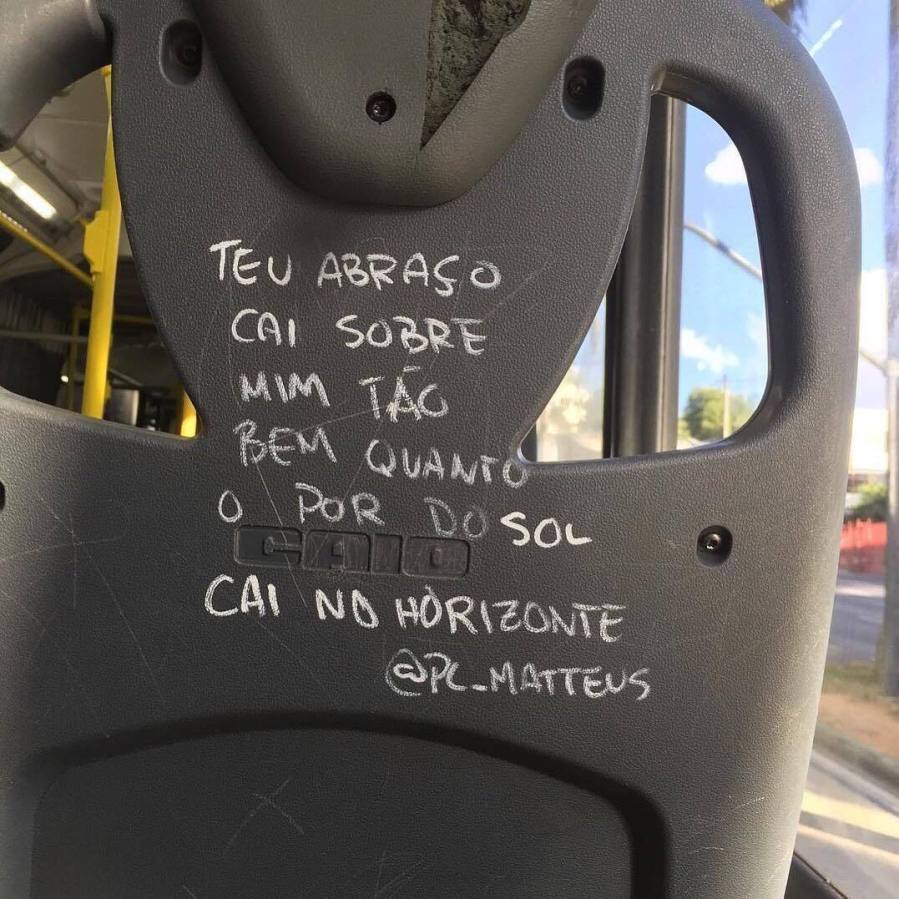 TEU ABRAÇO
CAI SOBRE
MIM TÃO
BEM QUANTO
O POR DO SOL
CAIO
CAI NO HORIZONTE
@PC_MATTEUS